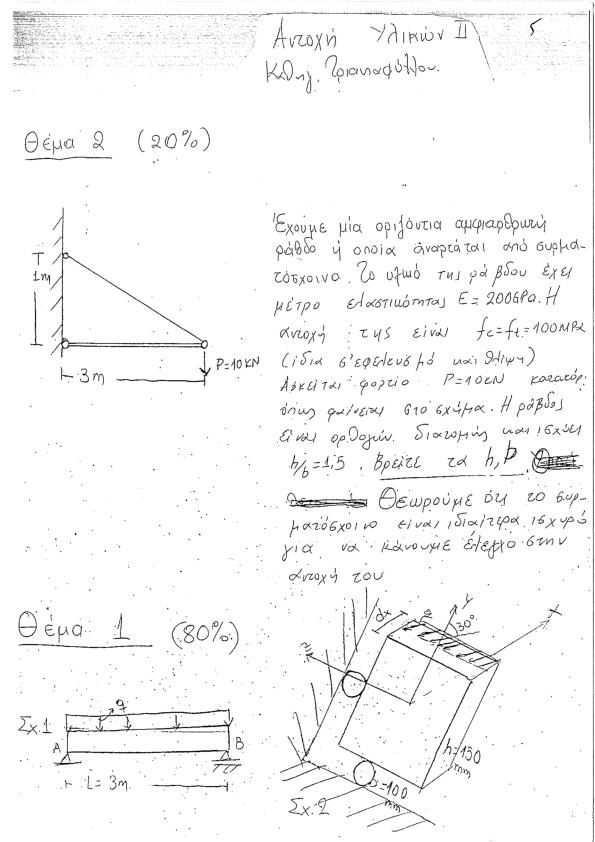 Αντοχή Υλικών II
5
Καθηγ. Τριανταφύλλου.
Θέμα 2 (20%)
Έχουμε μία οριζόντια αμφιαρθρωτή
ράβδο η οποία αναρτάται από συρμα-
τόσχοινο. Το υλικό της ράβδου έχει
μέτρο ελαστικότητας E = 200GPa. Η
αντοχή της είναι fc=ft=100MPa
(ίδια σ' εφελκυσμό και θλίψη)
Ασκείται φορτίο P=10kN κατακόρ.
όπως φαίνεται στο σχήμα. Η ράβδος
είναι ορθογών. διατομής και ισχύει
h/b=1,5. Βρείτε τα h, b.
Θεωρούμε ότι το συρ-
ματόσχοινο είναι ιδιαίτερα ισχυρό
για να κάνουμε έλεγχο στην
αντοχή του
1m
3m
P=10kN
Θέμα 1 (80%)
Σχ.1
q
A
B
L= 3m
dx
q
y
30°
x
z
h=150
mm
b=100
mm
Σχ.2